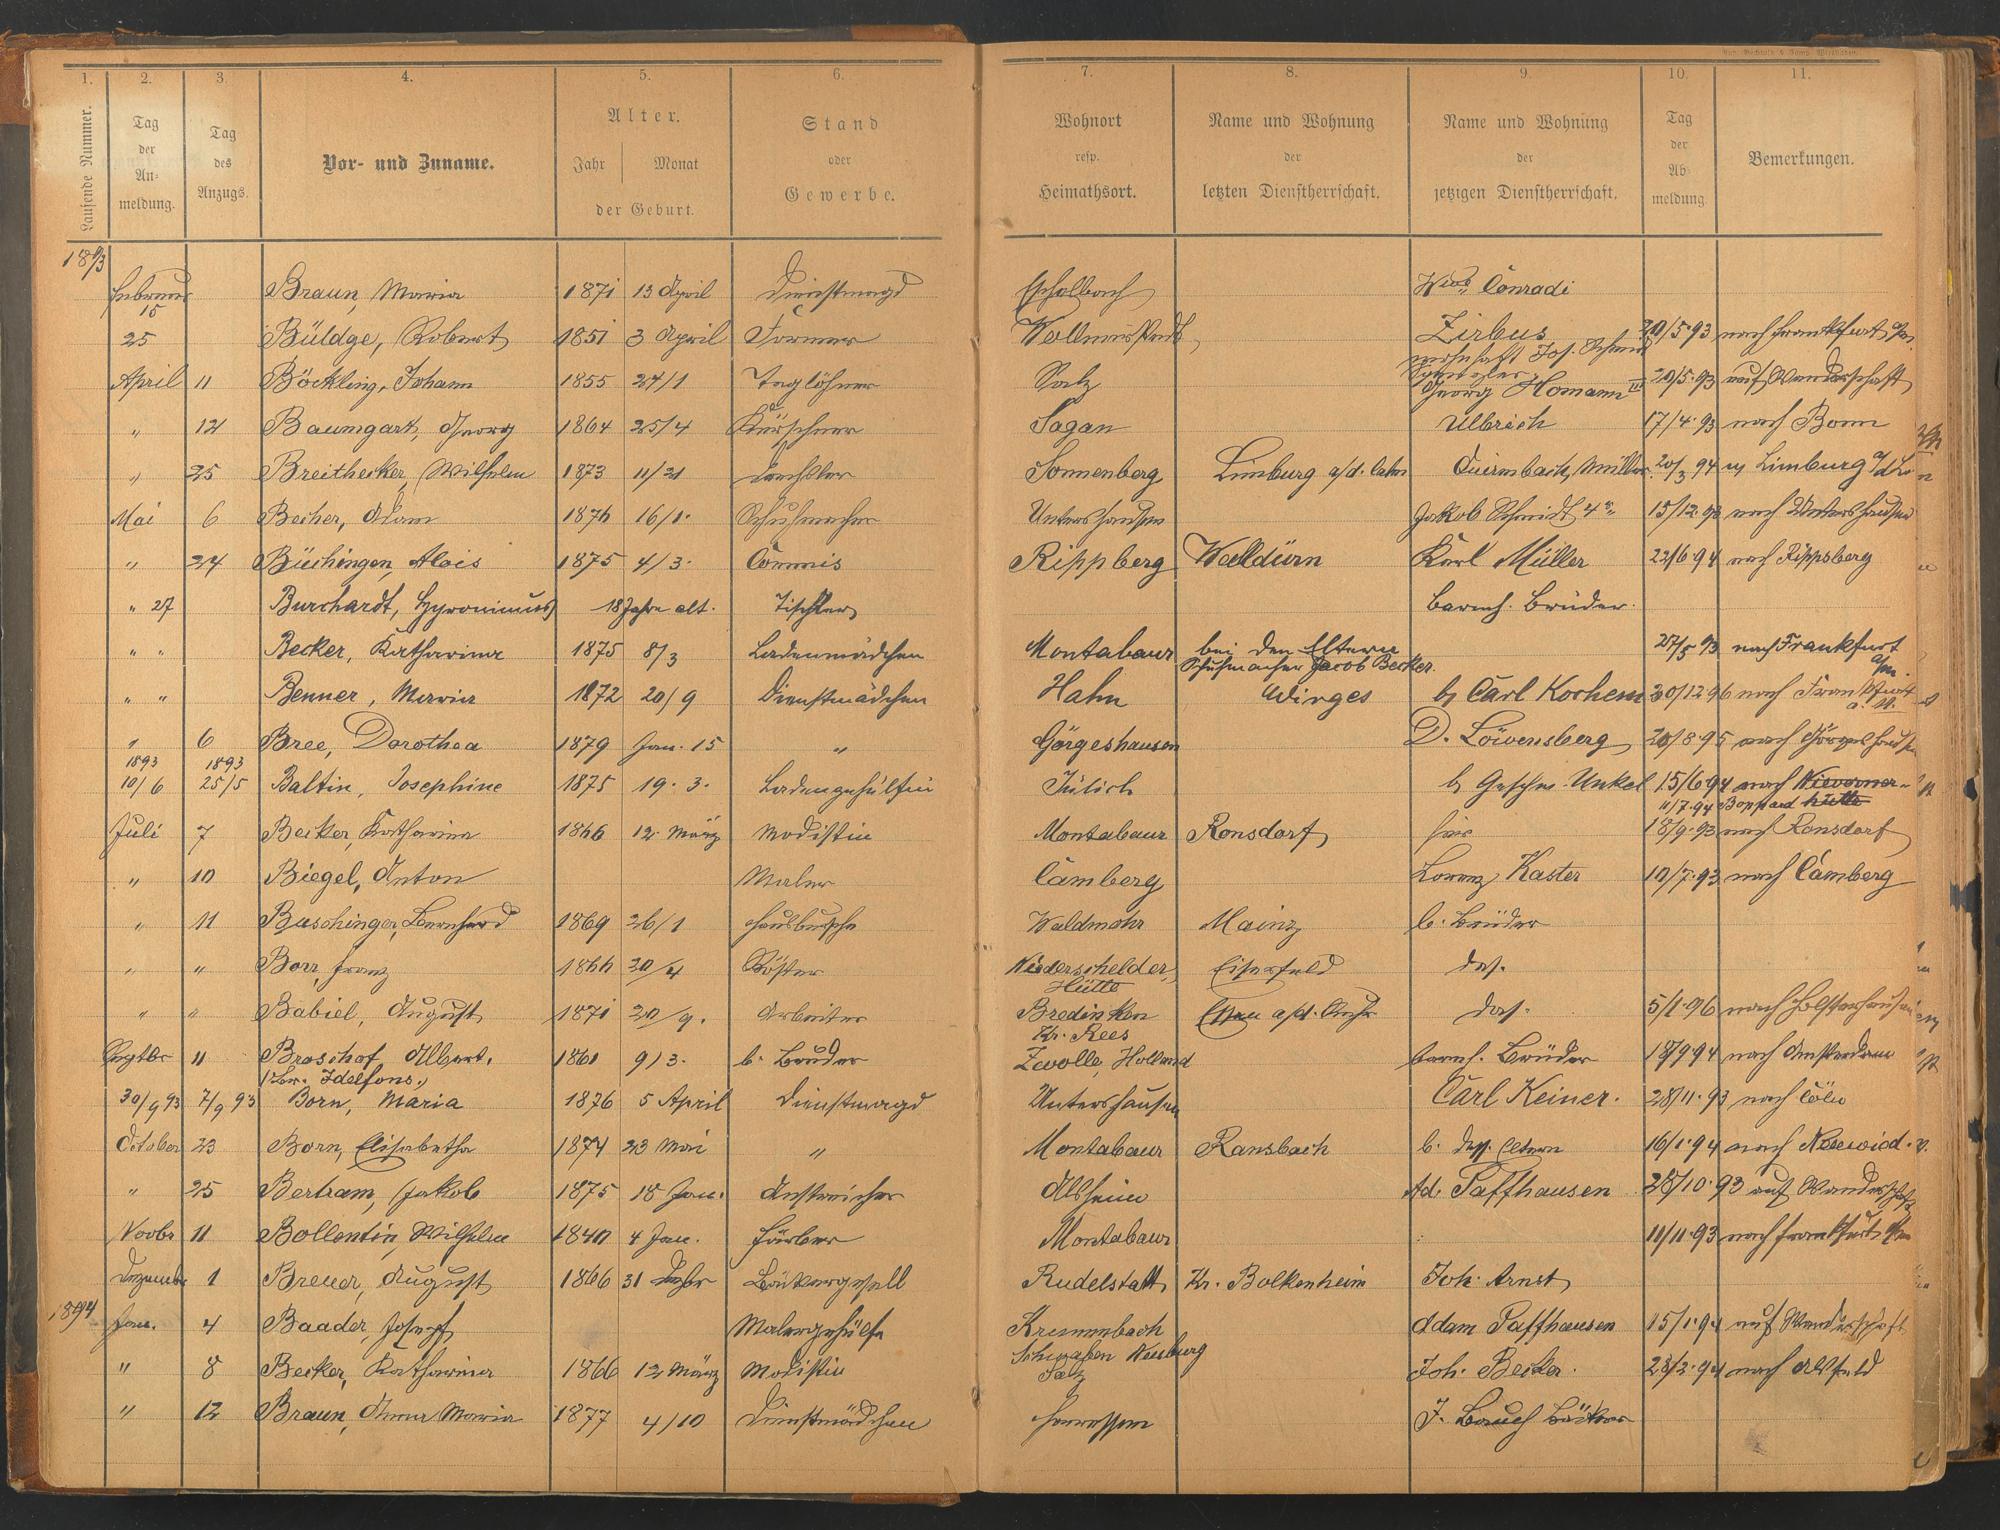 1. 2. 3. 4. 5. 6. 7. 8. 9. 10. 11.
Laufende Nummer.
Tag der An- meldung.
Tag des Anzugs.
Vor- und Zuname.
Alter.
Jahr Monat
der Geburt.
Stand oder Gewerbe.
Wohnort resp. Heimathsort.
Name und Wohnung der letzten Dienstherrschaft.
Name und Wohnung der jetzigen Dienstherrschaft.
Tag der Ab- meldung
Bemerkungen.
1893
Februar 15 Braun, Maria 1871 13 April Dienstmagd Eschelbach Wwe Conradi
25 Büldge, Robert 1851 3 April Former Zirbus 20/5.93 nach Frankfurt a/M
wirtschaft Jos. Schmidt
April 11 Böckling, Johann 1855 27/1 Taglöhner Salz Georg Homann III 20/5.93 auf Wanderschaft
" 12 Baumgart, Georg 1864 25/4 Kürschner Sagan Ulbrich 17/4.93 nach Bonn
" 25 Breithecker, Wilhelm 1873 11/21 Drechsler Sonnenberg Limburg a/d. Lahn Quirmbach, Müller 20/3 94 n Limburg a/d La
Mai 6 Becher, Adam 1876 16/1. Schuhmacher Untershausen Jakob Schmidt 4r 15/12.93 nach Untershausen
" 24 Büchingen, Alois 1875 4/3. Commis Rippberg Walldürn Karl Müller 22/6.94 nach Rippsberg
" 27 Burchardt, Hyronimus 18 Jahre alt. Tischler barmh. Brüder.
" " Becker, Katharina 1875 8/3 Ladenmädchen Montabaur bei den Eltern 27/5 93 nach Frankfurt a/M.
Schuhmacher Jacob Becker.
" " Benner, Maria 1872 20/9 Dienstmädchen Hahn Wirges b/ Carl Korhem 30/12 96 nach Frankfurt a. M.
" 6 Bree, Dorothea 1879 Jan. 15 " Görgeshausen D. Löwensberg 20/8.95 nach Görgeshausen
1893 1893
10/6 25/5 Baltin, Josephine 1875 19. 3. Ladengehülfin Jülich b/ Geschw. Unkel 15/6 94 nach Nievorner-
11/7.94 Boppard hütte
Juli 7 Becker, Katharina 1866 12. März Modistin Montabaur Ronsdorf hier 18/9.93 nach Ronsdorf
" 10 Biegel, Anton Maler Camberg Lorenz Kaster 10/7.93 nach Camberg
" 11 Buschinger, Bernhard 1869 26/1 Hausbursche Waldmohr Mainz b. Brüder
" " Borr, Franz 1866 20/4 Küster Niederschelder Hütte Eiserfeld das.
" " Babiel, August 1871 20/9. Arbeiter Bredinken Essen a/d. Ruhr das. 5/1.96 nach Holsterhausen
Kr. Rees
Septbr 11 Braschof, Albert. 1861 9/3. b. Bruder Zwolle, Holland barmh. Brüder 18/9 94 nach Amsterdam
(Br. Idelfons.)
30/9 93 7/9 93 Born, Maria 1876 5 April Dienstmagd Untershausen Carl Keiner. 28/11.93 nach Cöln
October 23 Born, Elisabetha 1874 23 Mai " Montabaur Ransbach b. den Eltern 16/1.94 nach Neuwied.
" 25 Bertram, Jakob 1875 18 Jan. Anstreicher Alsheim Ad. Paffhausen 28/10.93 auf Wanderschaft
Novbr 11 Bollentin, Wilhelm 1840 4 Jan. Färber Montabaur 11/11.93 nach Frankfurt a/M
Dezember 1 Breuer, August 1866 31 Dezbr Bäckergesell Rudelstatt, Kr. Bolkenheim Joh. Arnst
1894
Jan. 4 Baader, Josef Malergehülfe Krummbach Adam Paffhausen 15/1.94 auf Wanderschaft
Schwaben Neuburg
" 8 Becker, Katharina 1866 12 März Modistin Salz Joh. Becker. 28/2.94 nach Alsfeld
" 12 Braun, Anna Maria 1877 4/10 Dienstmädchen Horressen J. Bauch Bäcker